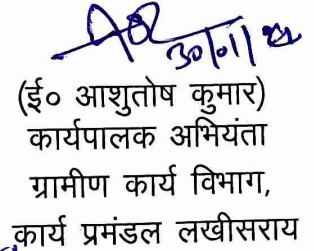 (ई० आशुतोष कुमार)
कार्यपालक अभियंता
ग्रामीण कार्य विभाग,
कार्य प्रमंडल लखीसराय